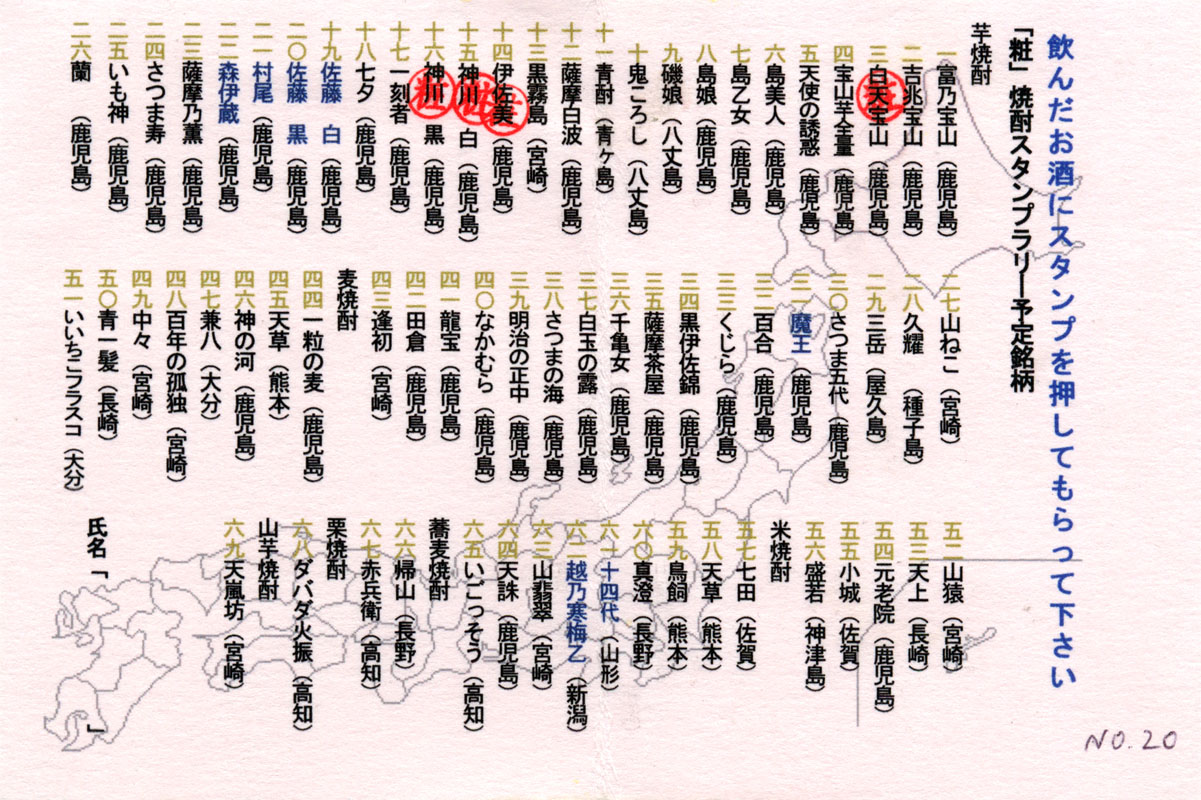 飲んだお酒にスタンプを押してもらって下さい
「粧」焼酎スタンプラリー予定銘柄
芋焼酎
一 富乃宝山（鹿児島）
二 吉兆宝山（鹿児島）
三 白天宝山（鹿児島）
四 宝山芋全量（鹿児島）
五 天使の誘惑（鹿児島）
六 島美人（鹿児島）
七 島乙女（鹿児島）
八 島娘（鹿児島）
九 磯娘（八丈島）
十 鬼ころし（八丈島）
十一 青酎（青ヶ島）
十二 薩摩白波（鹿児島）
十三 黒霧島（宮崎）
十四 伊佐美（鹿児島）
十五 神川 白（鹿児島）
十六 神川 黒（鹿児島）
十七 一刻者（鹿児島）
十八 七夕（鹿児島）
十九 佐藤 白（鹿児島）
二〇 佐藤 黒（鹿児島）
二一 村尾（鹿児島）
二二 森伊蔵（鹿児島）
二三 薩摩乃薫（鹿児島）
二四 さつま寿（鹿児島）
二五 いも神（鹿児島）
二六 蘭（鹿児島）
二七 山ねこ（宮崎）
二八 久耀（種子島）
二九 三岳（屋久島）
三〇 さつま五代（鹿児島）
三一 魔王（鹿児島）
三二 百合（鹿児島）
三三 くじら（鹿児島）
三四 黒伊佐錦（鹿児島）
三五 薩摩茶屋（鹿児島）
三六 千亀女（鹿児島）
三七 白玉の露（鹿児島）
三八 さつまの海（鹿児島）
三九 明治の正中（鹿児島）
四〇 なかむら（鹿児島）
四一 龍宝（鹿児島）
四二 田倉（鹿児島）
四三 逢初（宮崎）
麦焼酎
四四 一粒の麦（鹿児島）
四五 天草（熊本）
四六 神の河（鹿児島）
四七 兼八（大分）
四八 百年の孤独（宮崎）
四九 中々（宮崎）
五〇 青一髪（長崎）
五一 いいちこフラスコ（大分）
五二 山猿（宮崎）
五三 天上（長崎）
五四 元老院（鹿児島）
五五 小城（佐賀）
五六 盛若（神津島）
米焼酎
五七 七田（佐賀）
五八 天草（熊本）
五九 鳥飼（熊本）
六〇 真澄（長野）
六一 十四代（山形）
六二 越乃寒梅乙（新潟）
六三 山翡翠（宮崎）
六四 天誅（鹿児島）
六五 いごっそう（高知）
蕎麦焼酎
六六 帰山（長野）
六七 赤兵衛（高知）
栗焼酎
六八 ダバダ火振（高知）
山芋焼酎
六九 天嵐坊（宮崎）
氏名「 」
NO.20